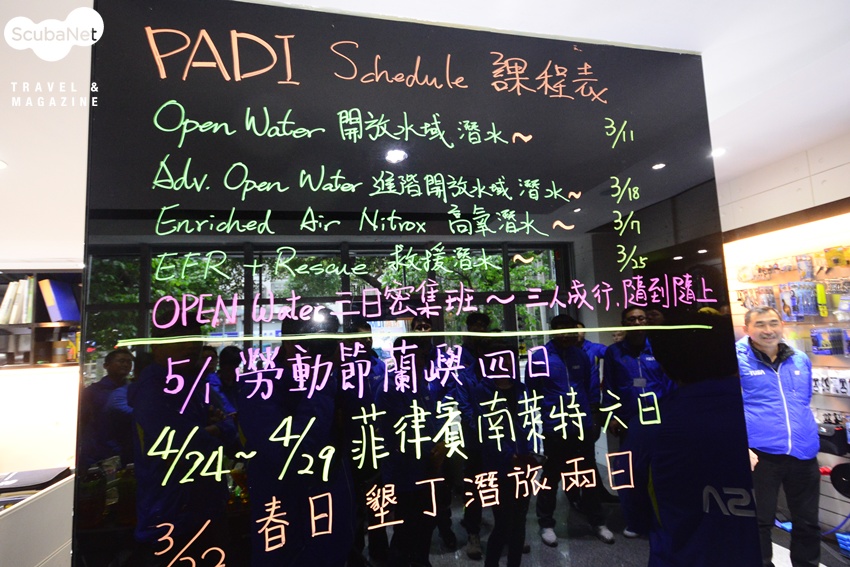 ScubaNet
TRAVEL &
MAGAZINE
PADI Schedule 課程表
Open Water 開放水域 潛水~ 3/11
Adv. Open Water 進階開放水域 潛水~ 3/18
Enriched Air Nitrox 高氧潛水~ 3/7
EFR + Rescue 救援潛水~ 3/25
OPEN Water 三日密集班~三人成行,隨到隨上
5/1 勞動節蘭嶼 四日
4/24~4/29 菲律賓南萊特六日
春日墾丁潛旅兩日